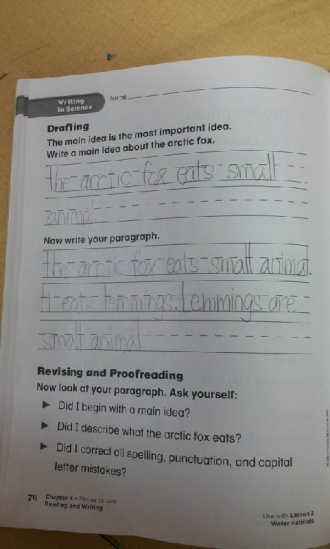 Writing
in Science
Name
Drafting
The main idea is the most important idea.
Write a main idea about the arctic fox.
The arctic fox eats small
animal.
Now write your paragraph.
The arctic fox eats small animal.
It eats lemmings. Lemmings are
small animal.
Revising and Proofreading
Now look at your paragraph. Ask yourself:
► Did I begin with a main idea?
► Did I describe what the arctic fox eats?
► Did I correct all spelling, punctuation, and capital
letter mistakes?
74 Chapter 4 • Places to Live
Reading and Writing
Use with Lesson 2
Water Habitats